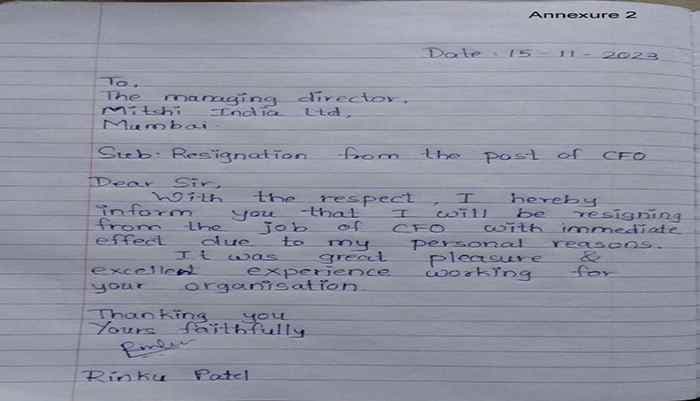 Annexure 2
Date : 15 - 11 - 2023
To,
The managing director,
Mitshi India Ltd,
Mumbai.
Sub: Resignation from the post of CFO
Dear Sir,
With the respect, I hereby
inform you that I will be resigning
from the job of CFO with immediate
effect due to my personal reasons.
It was great pleasure &
excellent experience working for
your organisation.
Thanking you
Yours faithfully
Rinku Patel